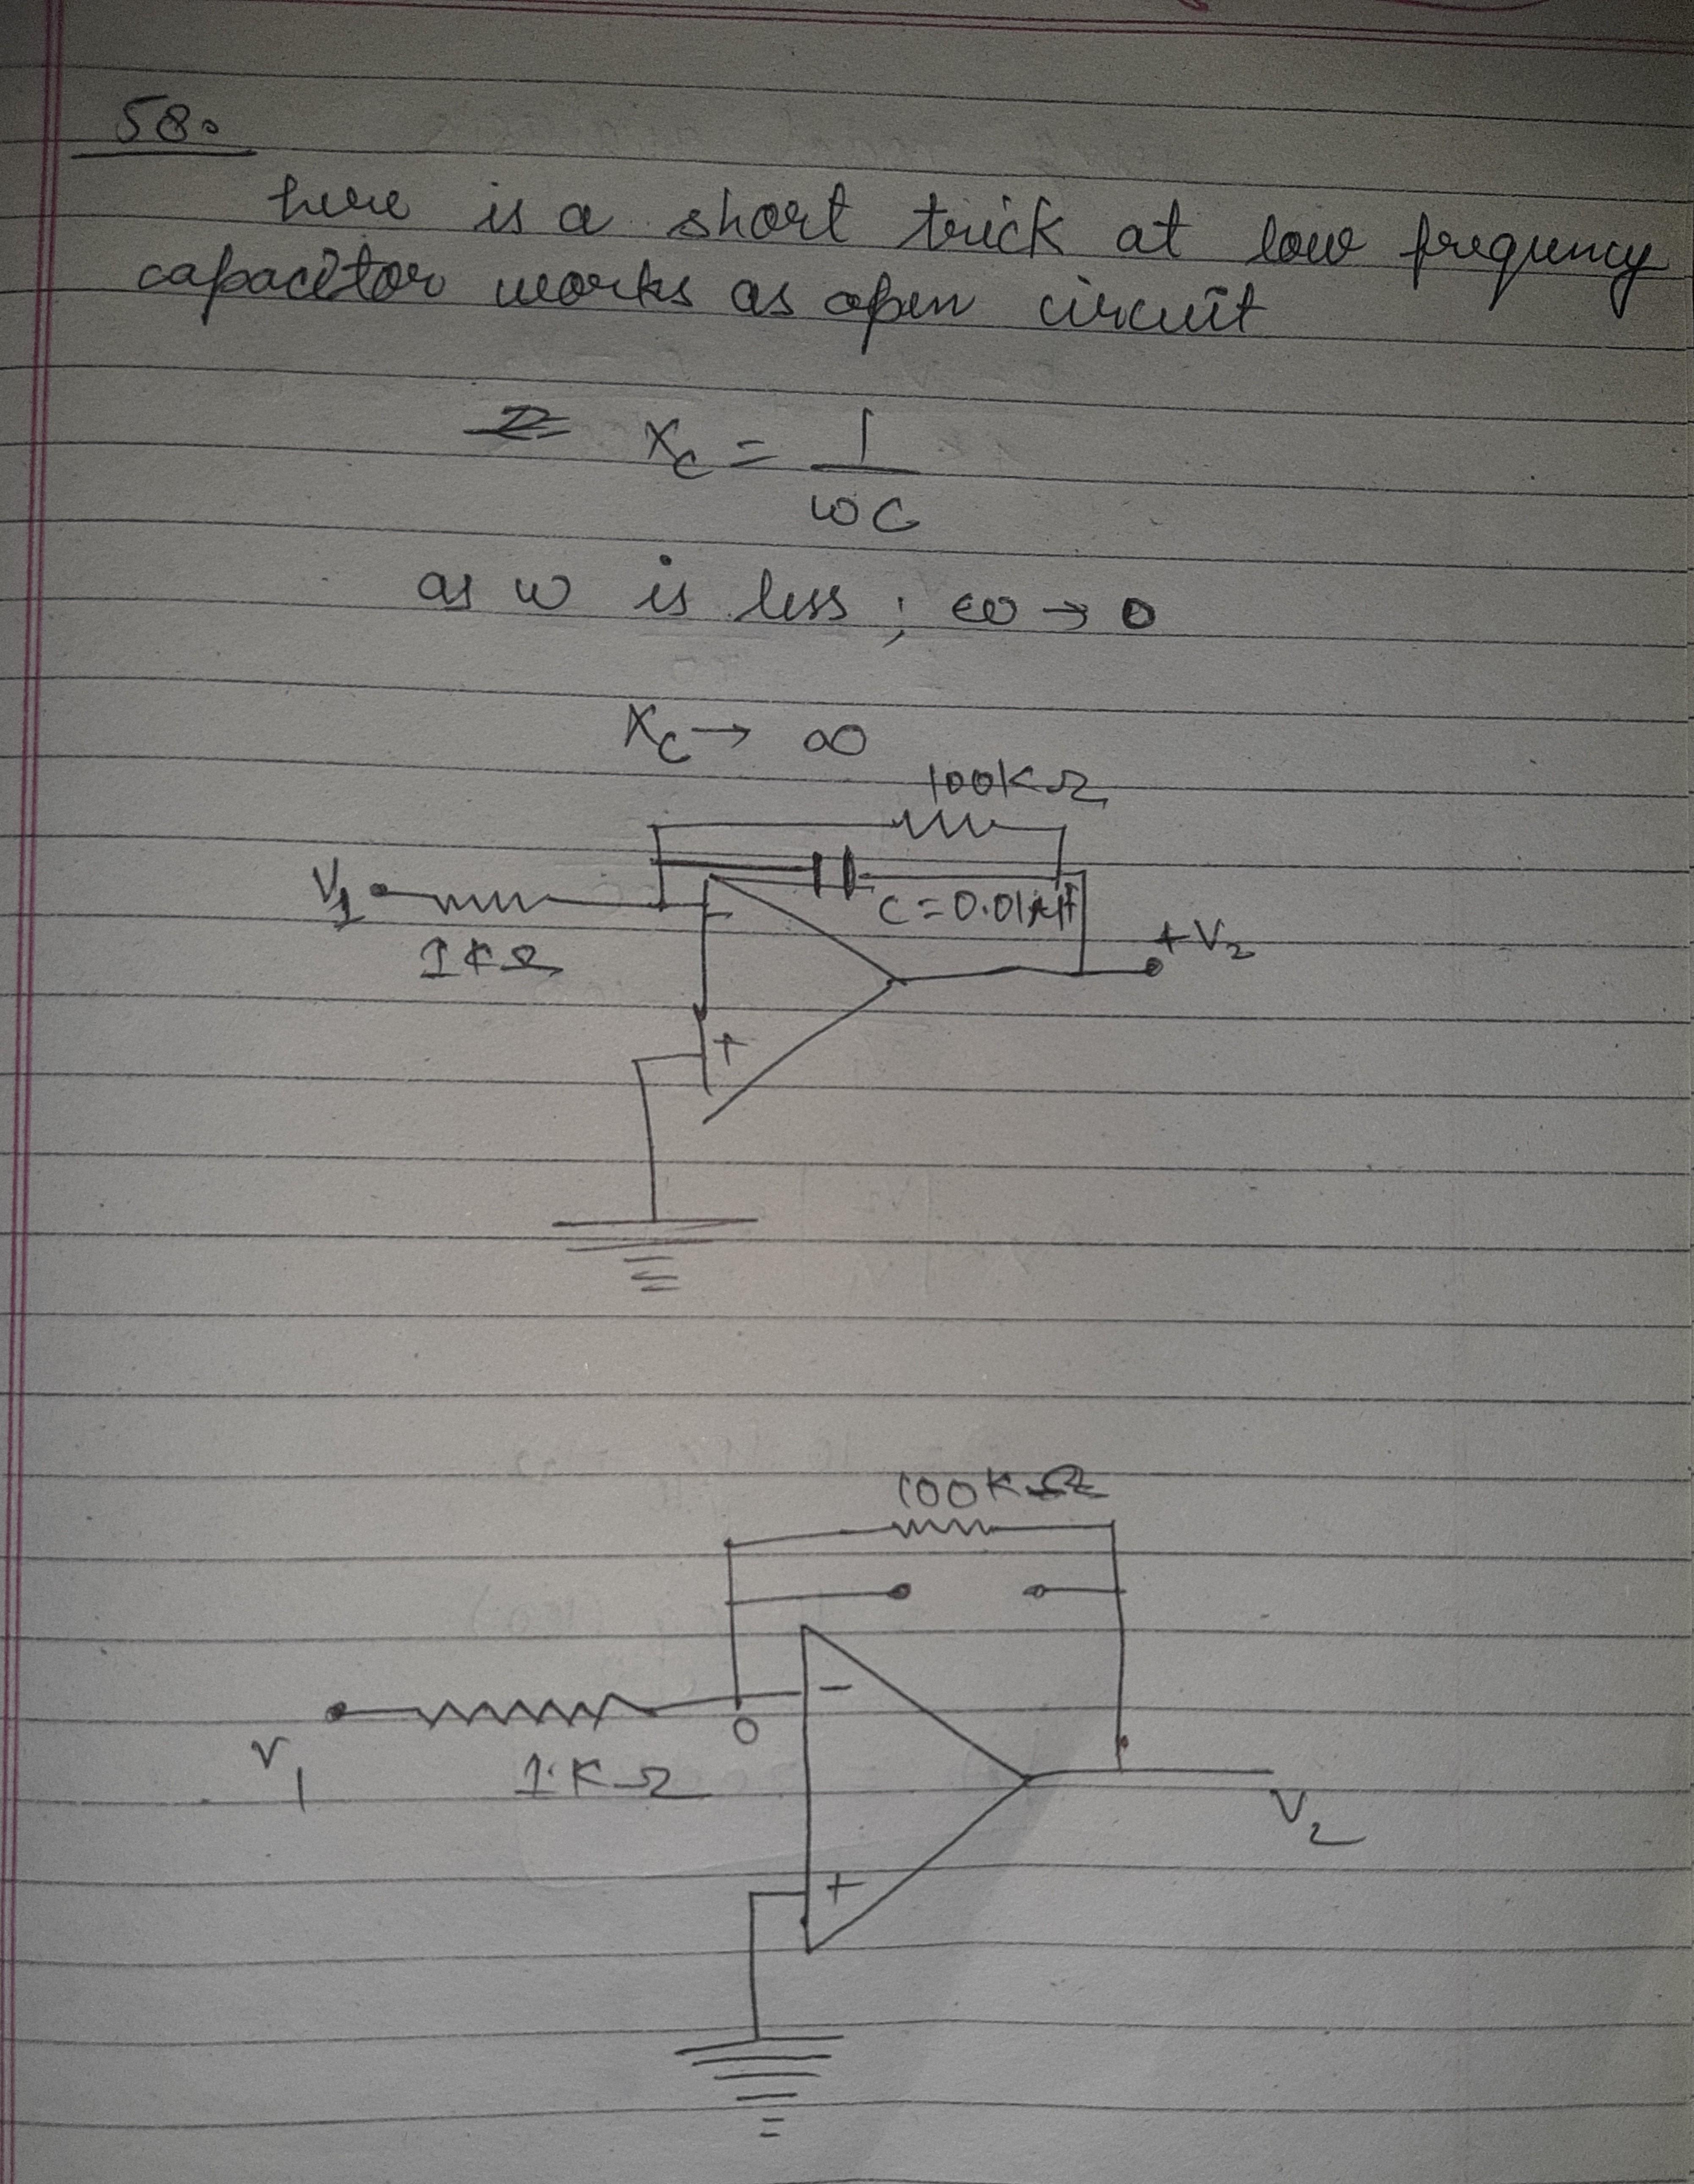 58.
here is a short trick at low frequency
capacitor works as open circuit
Xc = 1
ωC
as ω is less ; ω → 0
Xc → ∞
100KΩ
V1
C = 0.01μf
1KΩ
+V2
-
+
100KΩ
-
0
V1
1KΩ
V2
+